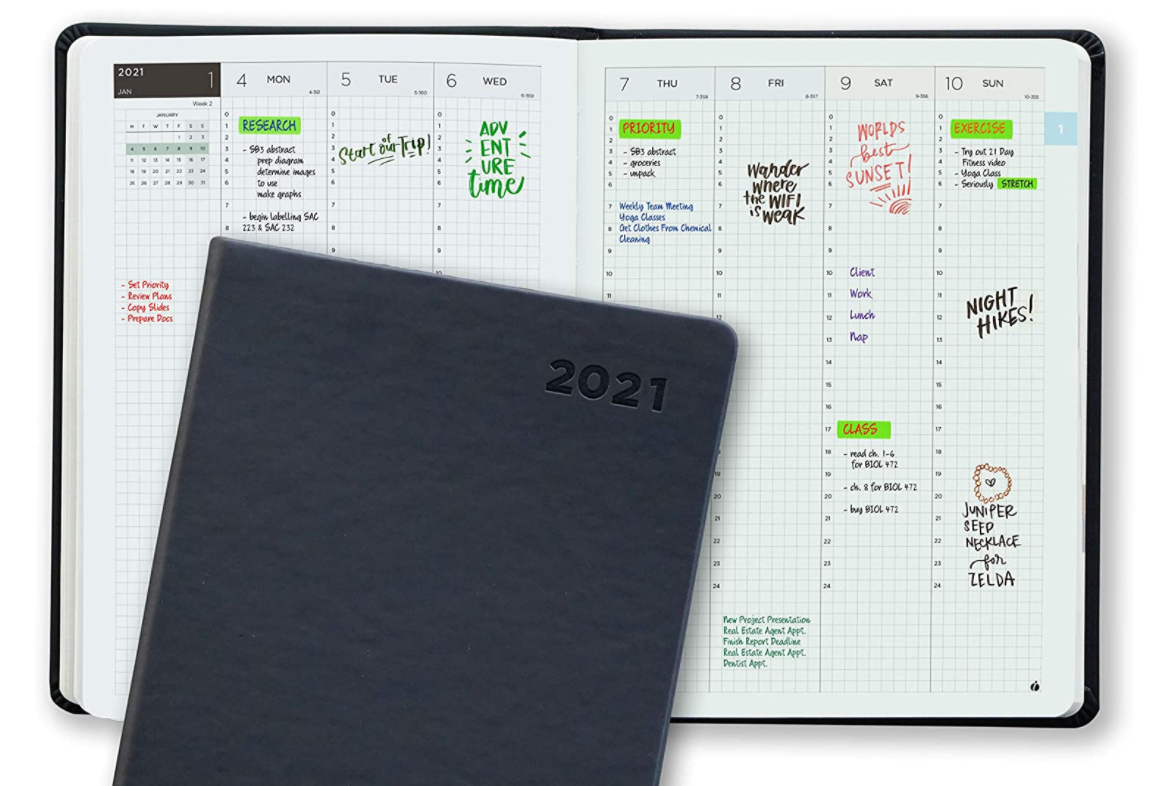 2021
1
JAN
Week 2
JANUARY
M T W T F S S
1 2 3
4 5 6 7 8 9 10
11 12 13 14 15 16 17
18 19 20 21 22 23 24
25 26 27 28 29 30 31
- Set Priority
- Review Plans
- Copy Slides
- Prepare Docs
4 MON
0
1
2
3
4
5
6
7
8
RESEARCH
- SB3 abstract
prep diagram
determine images
to use
make graphs
- begin labelling SAC
223 & SAC 232
5 TUE
5-360
0
1
2
3
4
5
6
7
8
9
Start of our Trip!
6 WED
6-359
0
1
2
3
4
5
6
7
8
9
10
ADV
ENT
URE
time
7 THU
7-358
0
1
2
3
4
5
6
7
8
9
10
11
PRIORITY
- SB3 abstract
- groceries
- unpack
Weekly Team Meeting
Yoga Classes
Get Clothes From Chemical
Cleaning
8 FRI
8-357
0
1
2
3
4
5
6
7
8
9
10
11
12
13
14
15
16
17
18
19
20
21
22
23
24
Wander
where
the WIFI
is weak
New Project Presentation
Real Estate Agent Appt.
Finish Report Deadline
Real Estate Agent Appt.
Dentist Appt.
9 SAT
9-356
0
1
2
3
4
5
6
7
8
9
10
11
12
13
14
15
16
17
18
19
20
21
22
23
24
WORLDS
best
SUNSET!
Client
Work
Lunch
Nap
CLASS
- read ch. 1-6
for BIOL 472
- ch. 8 for BIOL 472
- buy BIOL 472
10 SUN
10-355
0
1
2
3
4
5
6
7
8
9
10
11
12
13
14
15
16
17
18
19
20
21
22
23
24
EXERCISE
- Try out 21 Day
Fitness video
- Yoga Class
- Seriously STRETCH
NIGHT
HIKES!
JUNIPER
SEED
NECKLACE
for
ZELDA
1
2021